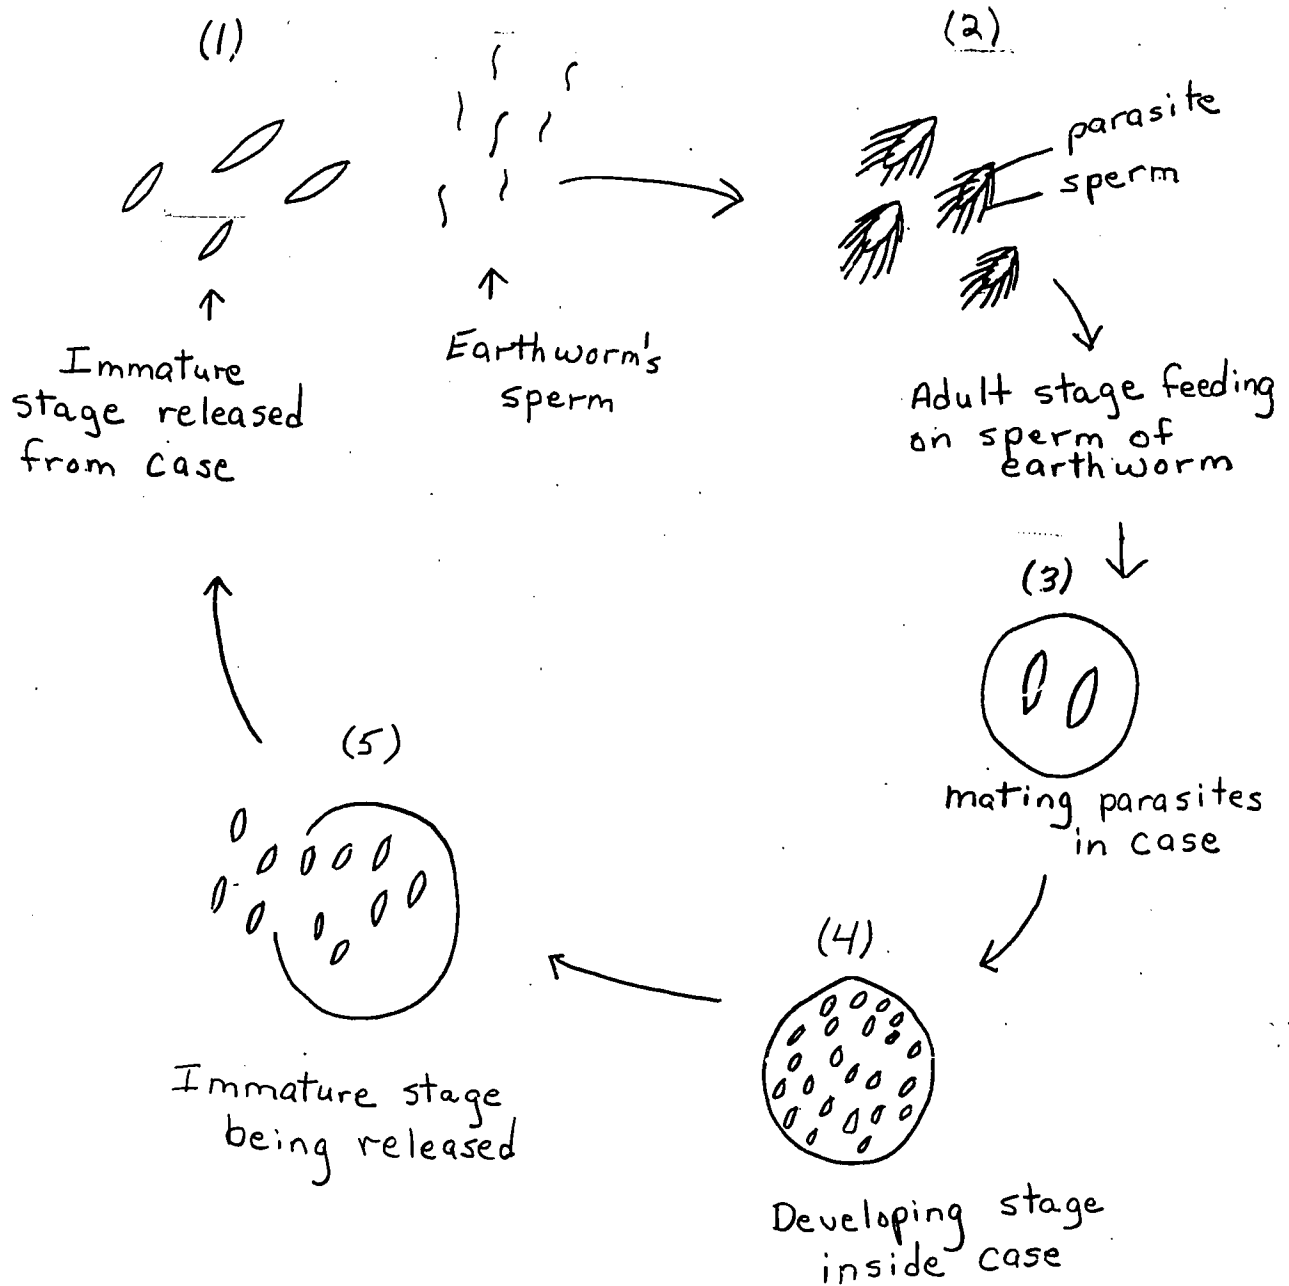 (1)
Immature
stage released
from case
Earthworm's
sperm
(2)
parasite
sperm
Adult stage feeding
on sperm of
earthworm
(3)
mating parasites
in case
(4)
Developing stage
inside case
(5)
Immature stage
being released